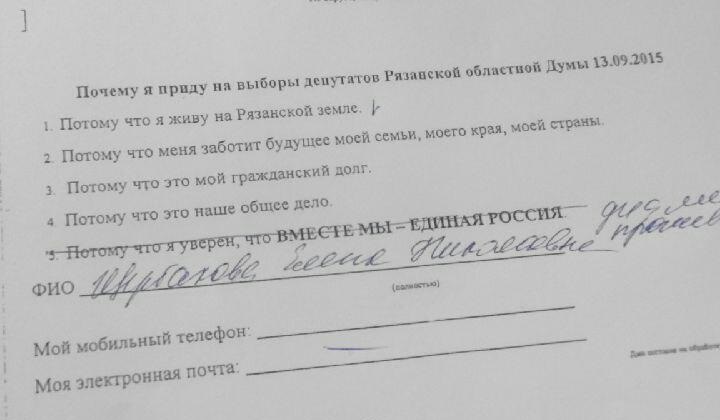 Почему я приду на выборы депутатов Рязанской областной Думы 13.09.2015
1. Потому что я живу на Рязанской земле.
2. Потому что меня заботит будущее моей семьи, моего края, моей страны.
3. Потому что это мой гражданский долг.
4. Потому что это наше общее дело.
5. Потому что я уверен, что ВМЕСТЕ МЫ – ЕДИНАЯ РОССИЯ.
ФИО Щербакова Елена Николаевна
(полностью)
Мой мобильный телефон:
Моя электронная почта:
Даю согласие на обработк